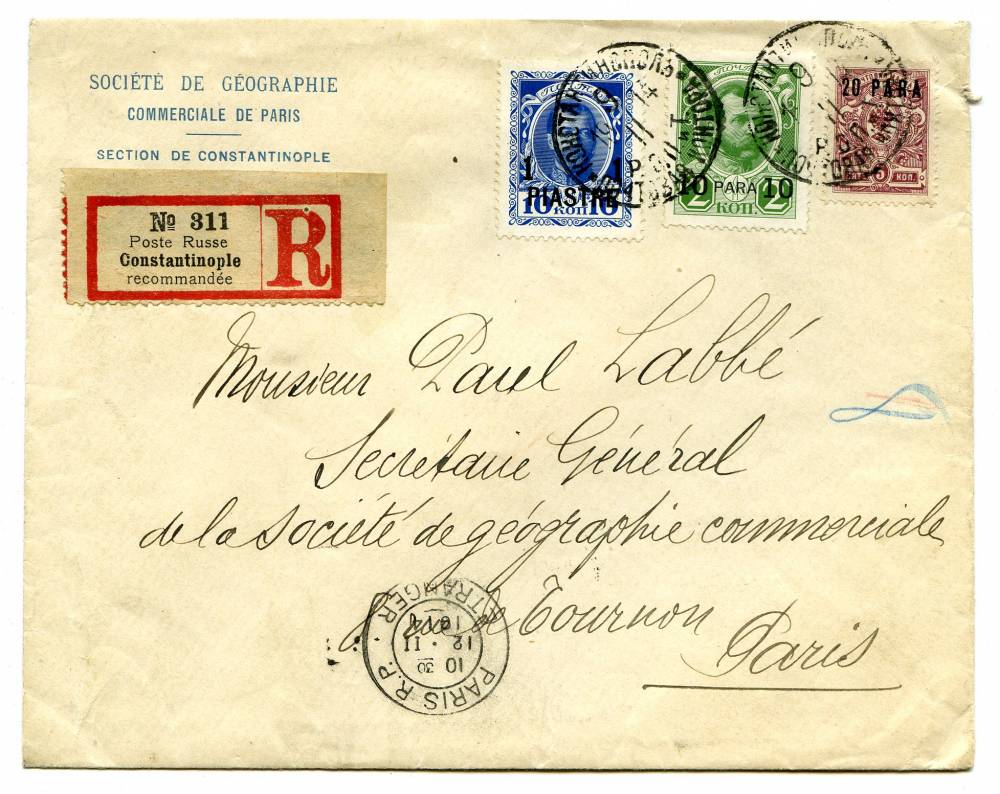 SOCIÉTÉ DE GÉOGRAPHIE
COMMERCIALE DE PARIS
SECTION DE CONSTANTINOPLE
1 1
PIASTRE
10 КОП 10
10 PARA 10
2 КОП. 2
20 PARA
5 КОП.
№ 311
Poste Russe
Constantinople
recommandée
R
Monsieur Paul Labbé
Secrétaire Général
de la Société de géographie commerciale
rue de Tournon
Paris
PARIS R.P.
ETRANGER
10 30
12 . II